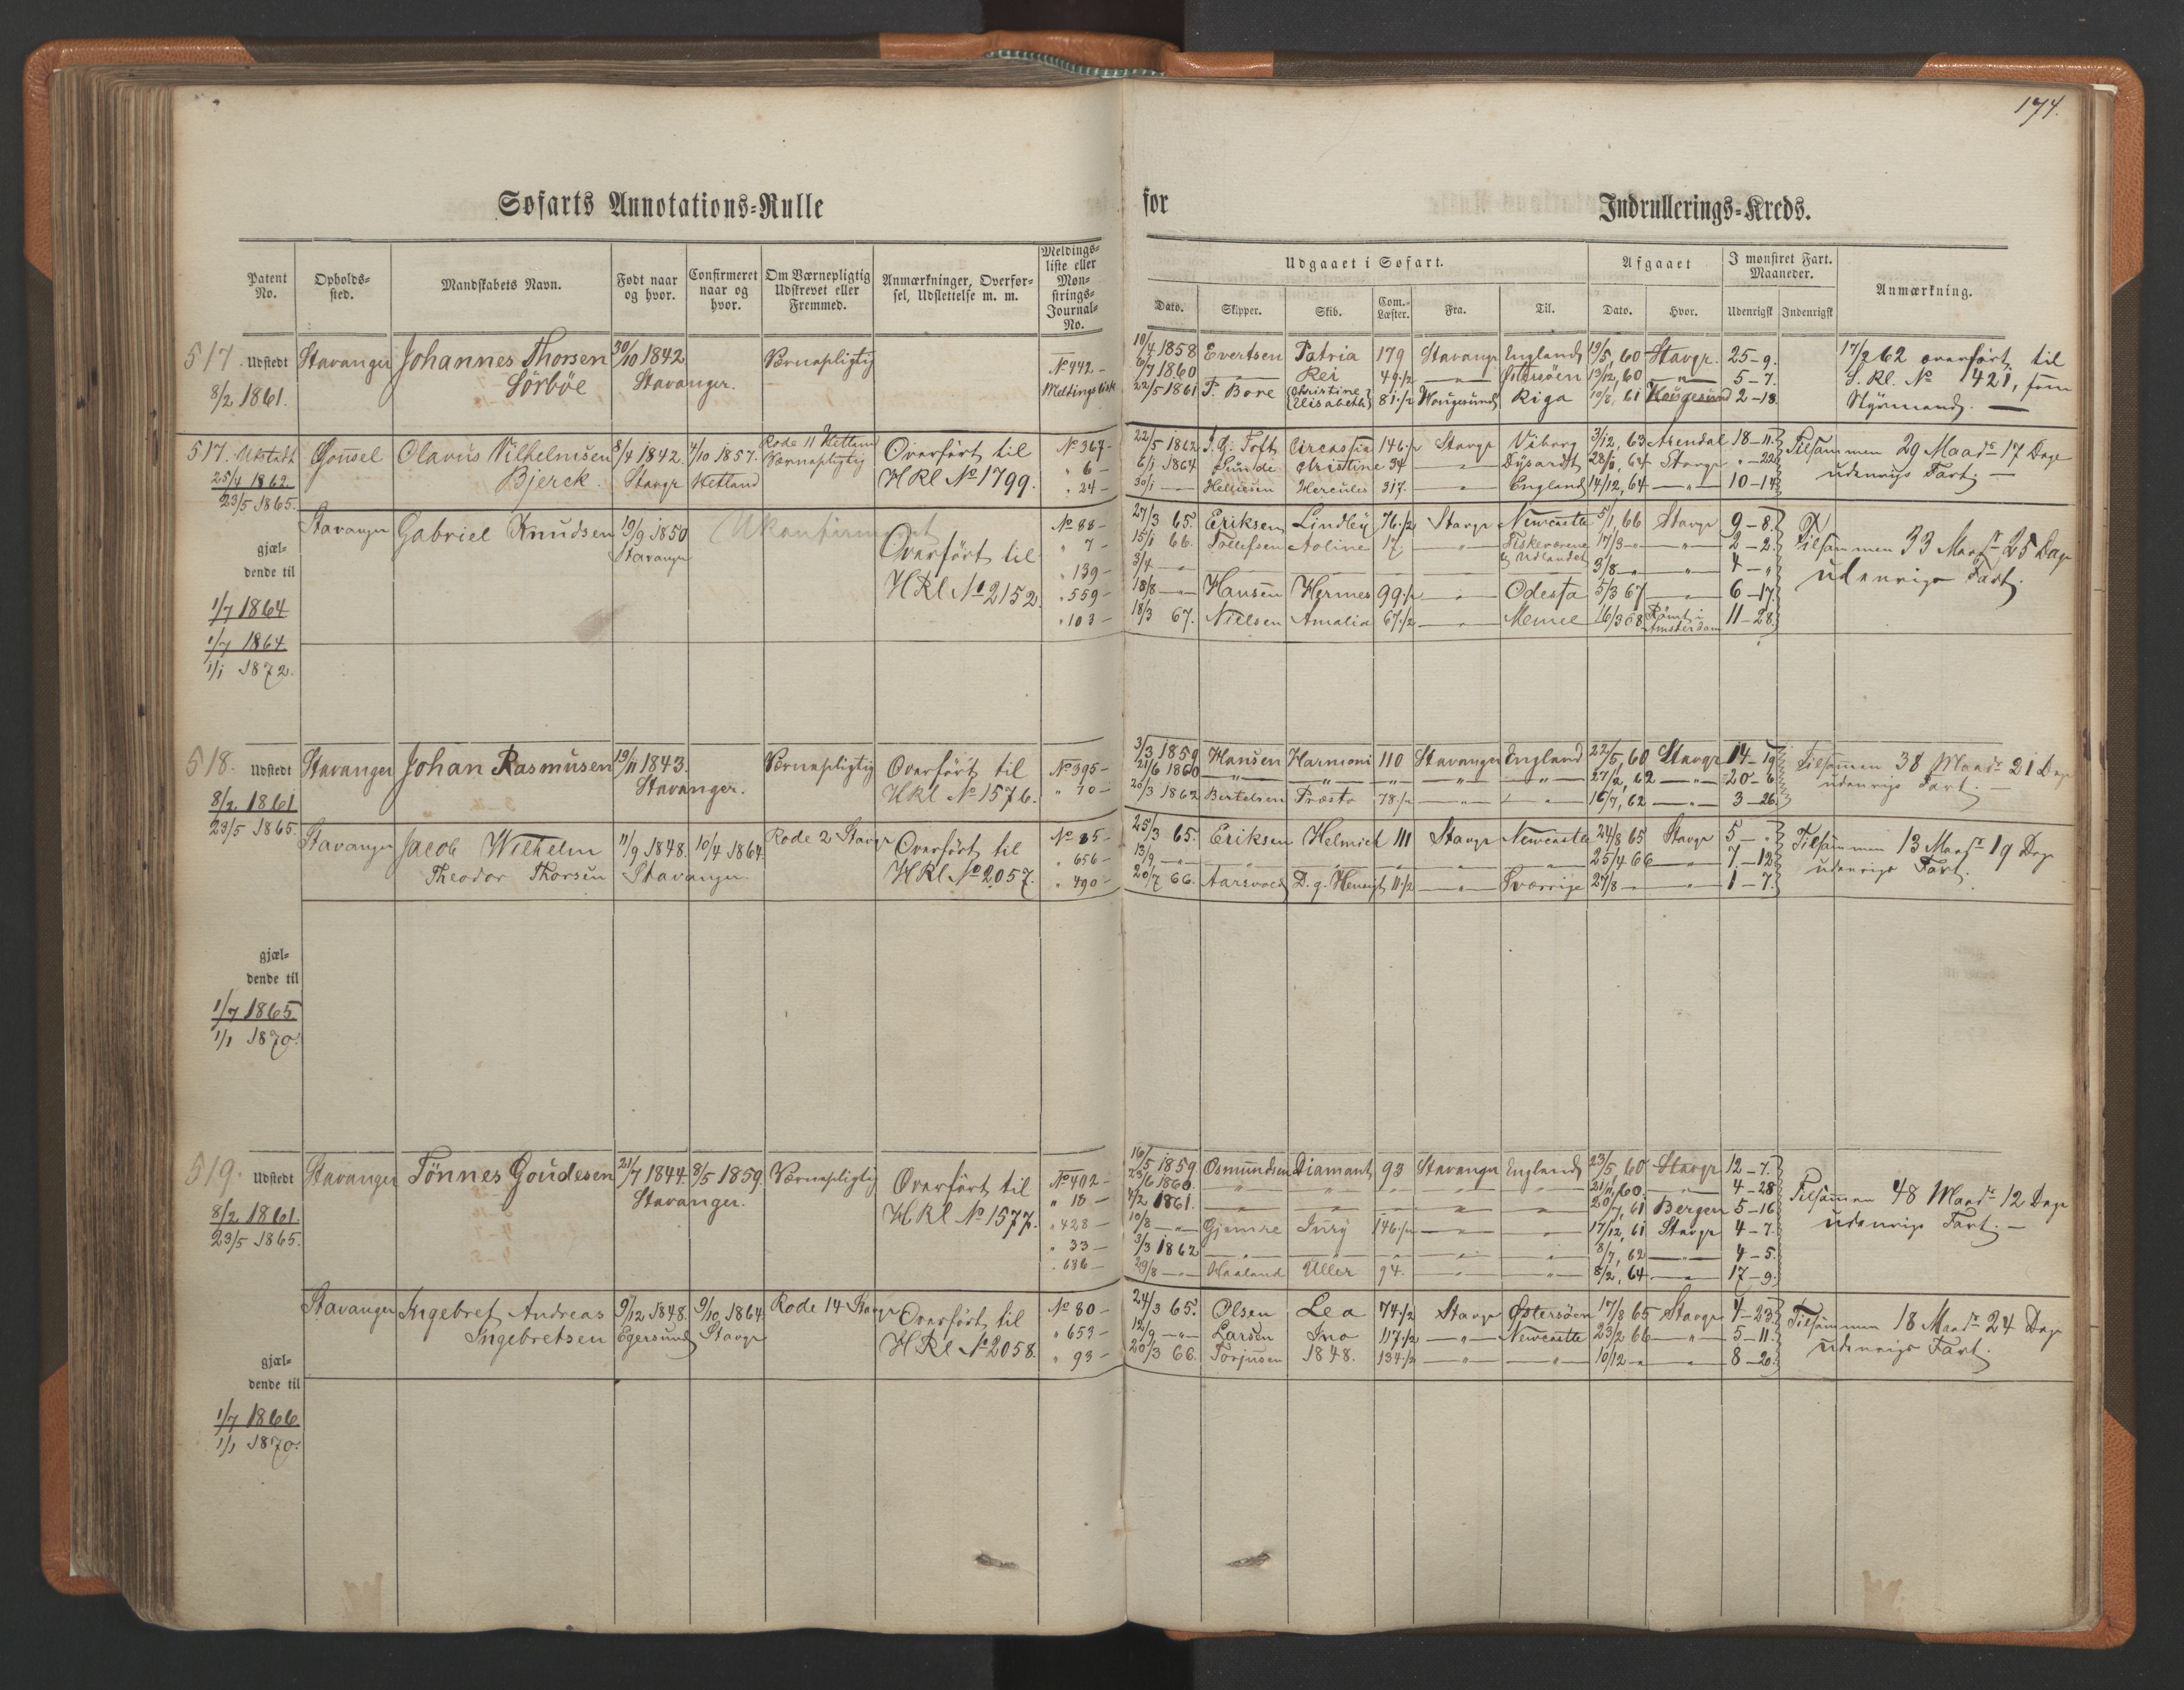 174.
Søfarts Annotations=Rulle
for
Indrullerings=Kreds.
Patent No.
Opholds=sted.
Mandskabets Navn.
Født naar og hvor.
Confirmeret naar og hvor.
Om Værnepligtig Udskrevet eller Fremmed.
Anmærkninger, Overførsel, Udslettelse m. m.
Meldings=liste eller Mønstrings=Journal=No.
Udgaaet i Søfart.
Afgaaet
I mønstret Fart. Maaneder.
Anmærkning.
Dato. Skipper. Skib. Com.-Læster. Fra. Til. Dato. Hvor. Udenrigst Indenrigst
517. Udstedt Stavanger Johannes Thorsen 30/10 1842 Værnepligtig
8/2 1861. Sörböe Stavanger.
No 442 -
Meldingslist
10/4 1858 Evertsen Patria 179 Stavangr England 19/5, 60 Stavgr. 25-9.
6/7 1860 — " — Rei 49 1/2 — " — Østersöen 13/12, 60 — " — 5-7.
22/5 1861 T. Bore Christine Elisabeth 81 1/2 Hougesund Riga 10/8, 61 Hougesund 2-18.
17/2 62 overført til
S. Rl. No 421, som
Styrmand. —
517. Udstedt Gousel Olavus Vilhelmsen 8/4 1842. 4/10 1857. Rode 11 Hetland Overført til No 367-
25/4 1862 Bjerck. Stavgr Hetland Værnepligtig HRl No 1799. " 6 -
23/5 1865. " 24 -
22/5 1862 Toft Circassia 146 1/2 Stavgr Viborg 3/12, 63 Arendal 18-11.
6/1 1864 Sunde Christine 34 — " — Dysardt 28/1, 64 Stavgr " -22
30/1 — " — Helliesen Hercules 317. — " — England 14/12, 64 — " — 10-14
Tilsammen 29 Maadr 17 Dage
udenrigs Fart. —
Stavanger Gabriel Knudsen 19/9 1850 Ukonfirmeret No 88-
Stavanger Overført til " 7 -
HRl No 2152. " 139 -
" 559 -
" 103 -
gjæl=
dende til
1/7 1864
1/7 1864
1/1 1872.
27/3 65. Eriksen Lindley 76 1/2 Stavgr Newcastle 5/1, 66 Stavgr 9-8.
15/1 66. Tollefsen Aoline 17. — " — Fiskeværene & Udlandet 17/3 — " — 2-2.
3/4 — " — 3/8 — " — 4-"
18/8 — " — Hansen Hermes 99 1/2 — " — Odessa 5/3 67 — " — 6-17
18/3 67. Nielsen Amalia 67 1/2 — " — Memel 16/3 68 Rømt i Amsterdam 11-28.
Tilsammen 33 Maadr 25 Dage
udenrigs Fart.
518. Udstedt Stavanger Johan Rasmusen 19/11 1843. Værnepligtig Overført til No 395-
8/2 1861 Stavanger. HRl No 1576. " 10 -
23/5 1865.
3/3 1859 Hansen Harmoni 110 Stavanger England 22/5, 60 Stavgr 14-19
21/6 1860 — " — " — " — " — " 27/2, 62 — " — 20-6
20/3 1862 Bertelsen Præsto 78 1/2 — " — " — 16/7, 62 — " — 3-26.
Tilsammen 38 Maadr 21 Dage
udenrigs Fart. —
Stavanger Jacob Wilhelm 11/9 1848. 10/4 1864. Rode 2 Stavgr Overført til No 85-
Theodor Thorsen Stavanger. HRl No 2057. " 656 -
" 490 -
25/3 65. Eriksen Helmich 111 Stavgr Newcastle 24/8 65 Stavgr 5-"
13/9 — " — " — " — " — " — " 25/4 66 — " — 7-12
20/7 66. Aarsvold D. g. Hensigt 11 1/2 — " — Sverrige 27/8 — " — 1-7.
Tilsammen 13 Maadr 19 Dage
udenrigs Fart.
gjæl=
dende til
1/7 1865
1/1 1870.
519. Udstedt Stavanger Tönnes Goudesen 21/7 1844. 8/5 1859. Værnepligtig Overført til No 402 -
8/2 1861. Stavanger. HRl No 1577. " 18 -
23/5 1865. " 428 -
" 33 -
" 636 -
16/5 1859. Osmundsen Diamant 93 Stavanger England 23/5, 60 Stavgr 12-7.
23/6 1860. — " — " — " — " — " 21/11, 60. — " — 4-28
4/2 1861. — " — " — " — " — " 20/7, 61 Bergen 5-16
10/8 — " — Gjemre Jury 146 1/2 — " — " 17/12, 61 Stavgr 4-7.
3/3 1862 — " — " — " — " 8/7, 62 — " — 4-5.
29/8 — " — Haaland Uller 94. — " — " 8/2, 64 — " — 17-9.
Tilsammen 48 Maadr 12 Dage
udenrigs Fart. —
Stavanger Ingebret Andreas 9/12 1848. 9/10 1864. Rode 14 Stavgr Overført til No 80 -
Ingebretsen Egersund Stavgr HRl No 2058. " 653 -
" 93 -
24/3 65. Olsen Lea 74 1/2 Stavgr Østersöen 17/8 65 Stavgr 4-23.
12/9 — " — Larsen Ino 117 1/2 — " — Newcastle 23/2 66 — " — 5-11.
20/3 66. Torjusen 1848. 134 1/2 — " — " 10/12 — " — 8-20.
Tilsammen 18 Maadr 24 Dage
udenrigs Fart.
gjæl=
dende til
1/7 1866
1/1 1870.